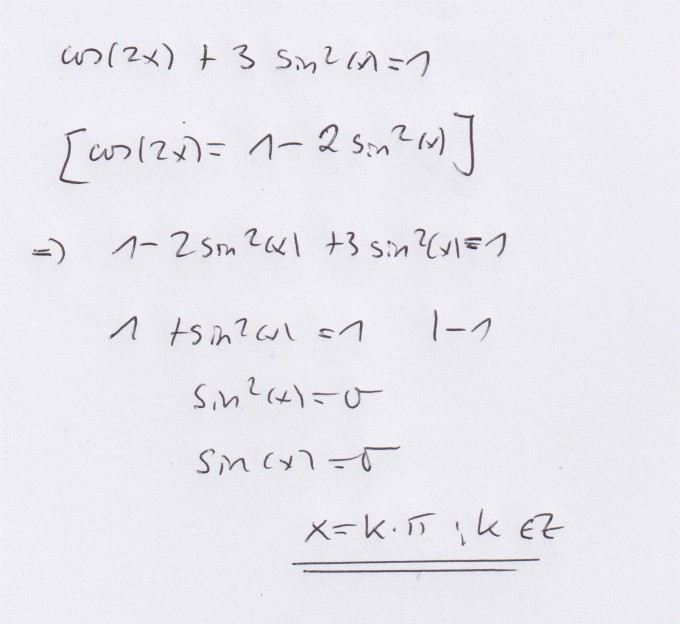 cos(2x) + 3 sin²(x) = 1
[cos(2x) = 1 - 2 sin²(x)]
=> 1 - 2 sin²(x) + 3 sin²(x) = 1
1 + sin²(x) = 1 | -1
sin²(x) = 0
sin(x) = 0
x = k · π ; k ∈ Z